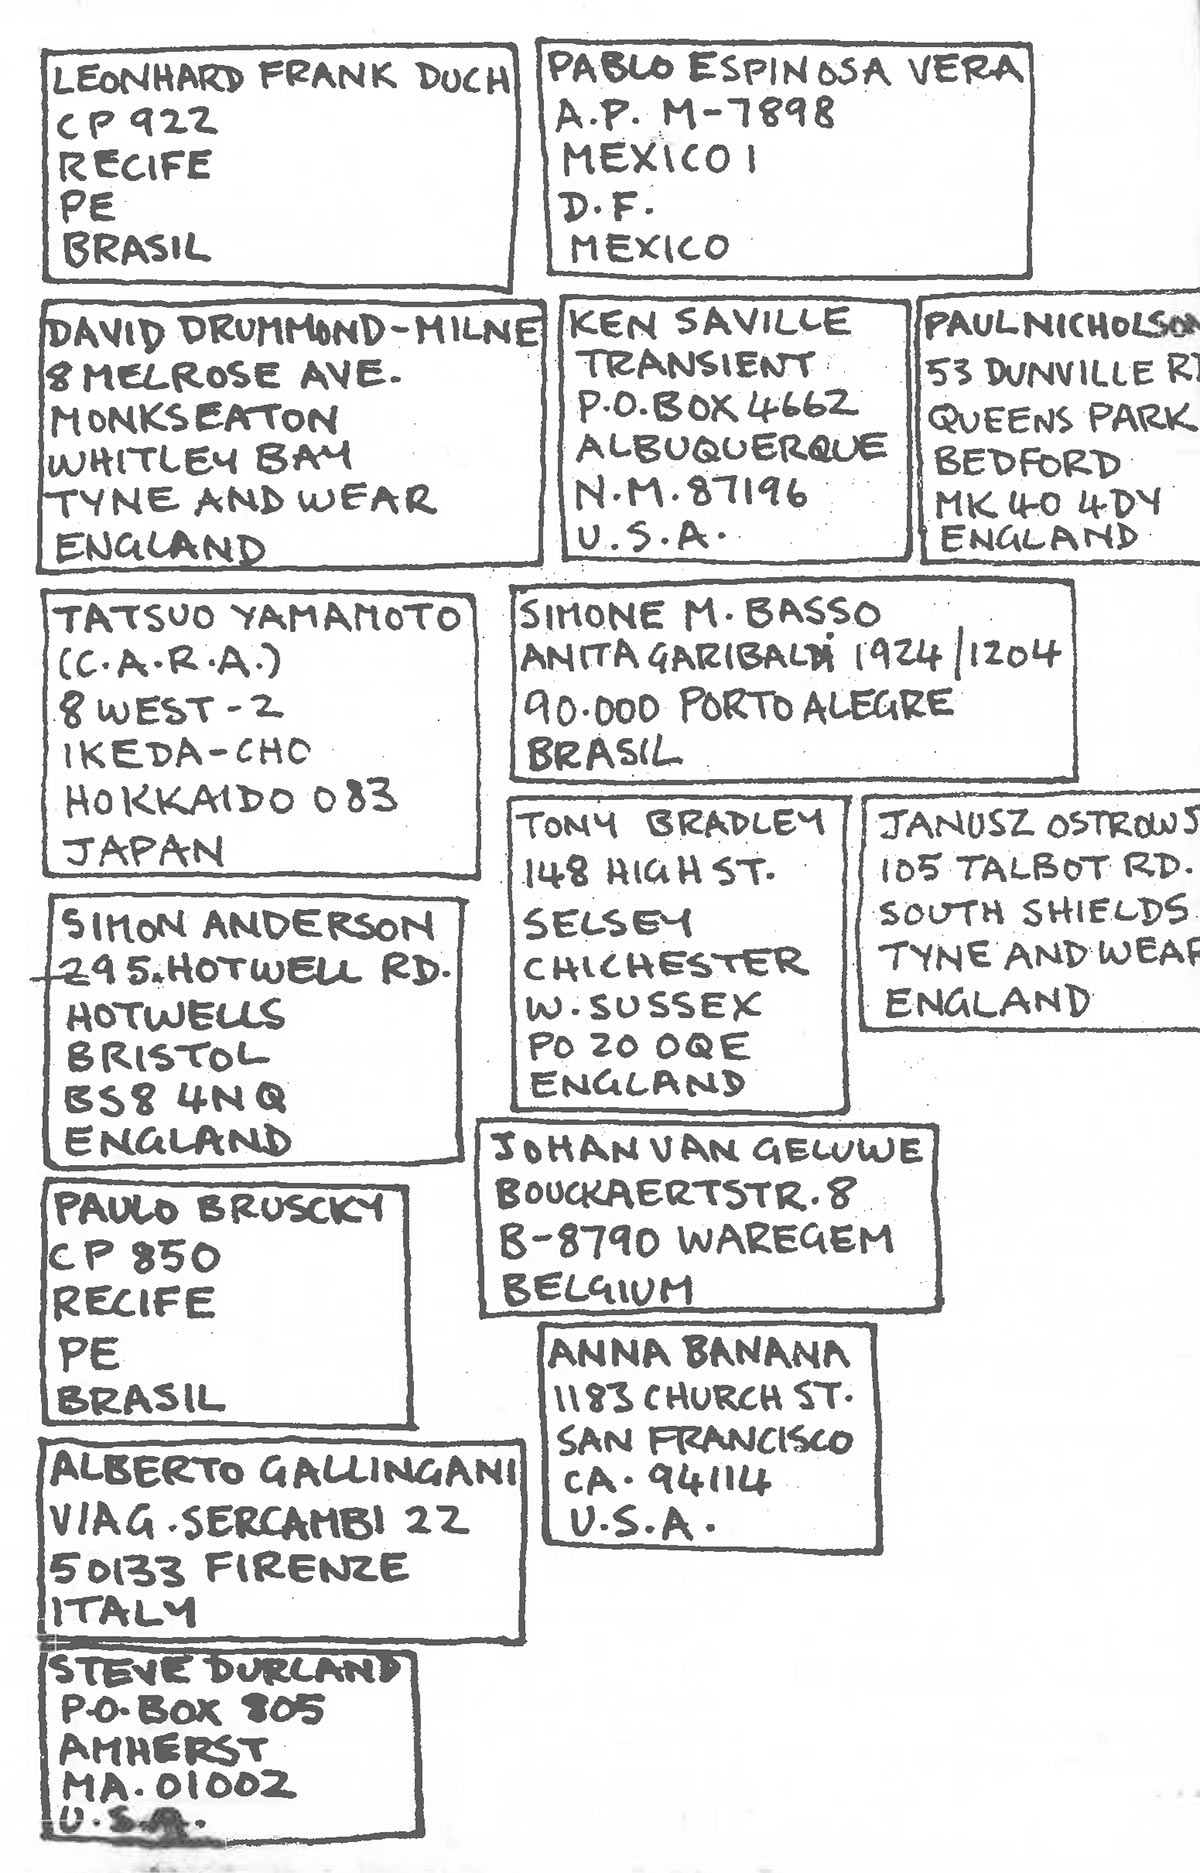 LEONHARD FRANK DUCH
CP 922
RECIFE
PE
BRASIL
PABLO ESPINOSA VERA
A.P. M-7898
MEXICO 1
D.F.
MEXICO
DAVID DRUMMOND-MILNE
8 MELROSE AVE.
MONKSEATON
WHITLEY BAY
TYNE AND WEAR
ENGLAND
KEN SAVILLE
TRANSIENT
P.O.BOX 4662
ALBUQUERQUE
N.M. 87196
U.S.A.
PAUL NICHOLSON
53 DUNVILLE RD
QUEENS PARK
BEDFORD
MK40 4DY
ENGLAND
TATSUO YAMAMOTO
(C.A.R.A.)
8 WEST-2
IKEDA-CHO
HOKKAIDO 083
JAPAN
SIMONE M. BASSO
ANITA GARIBALDi 1924/1204
90.000 PORTO ALEGRE
BRASIL
TONY BRADLEY
148 HIGH ST.
SELSEY
CHICHESTER
W. SUSSEX
PO 20 0QE
ENGLAND
JANUSZ OSTROWS
105 TALBOT RD.
SOUTH SHIELDS
TYNE AND WEAR
ENGLAND
SIMON ANDERSON
295.HOTWELL RD.
HOTWELLS
BRISTOL
BS8 4NQ
ENGLAND
JOHAN VAN GELUWE
BOUCKAERTSTR.8
B-8790 WAREGEM
BELGIUM
PAULO BRUSCKY
CP 850
RECIFE
PE
BRASIL
ANNA BANANA
1183 CHURCH ST.
SAN FRANCISCO
CA. 94114
U.S.A.
ALBERTO GALLINGANI
VIA G. SERCAMBI 22
50133 FIRENZE
ITALY
STEVE DURLAND
P.O. BOX 805
AMHERST
MA. 01002
U.S.A.